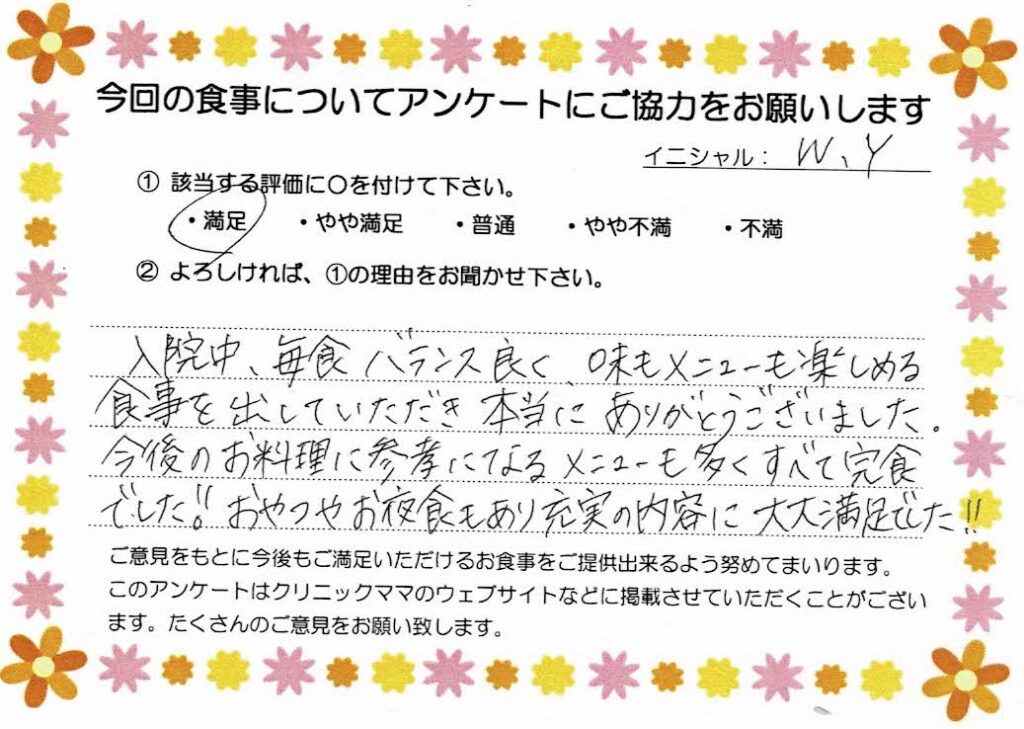 今回の食事についてアンケートにご協力をお願いします
イニシャル： W、Y
① 該当する評価に○を付けて下さい。
・満足 ・やや満足 ・普通 ・やや不満 ・不満
② よろしければ、①の理由をお聞かせ下さい。
入院中、毎食バランス良く、味もメニューも楽しめる
食事を出していただき本当にありがとうございました。
今後のお料理に参孝になるメニューも多くすべて完食
でした!! おやつやお夜食もあり充実の内容に大大満足でした!!
ご意見をもとに今後もご満足いただけるお食事をご提供出来るよう努めてまいります。
このアンケートはクリニックママのウェブサイトなどに掲載させていただくことがござい
ます。たくさんのご意見をお願い致します。